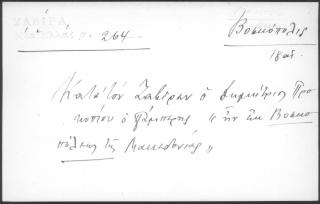 ΖΑΒΙΡΑ
Νέα Ελλάς σ. 264
Βοσκόπολις
18αι.
Κατά τον Ζαβίραν ο Δημήτριος Προ
κοπίου ο Πάμπερης "ην εκ Βοσκο
πόλεως της Μακεδονίας"